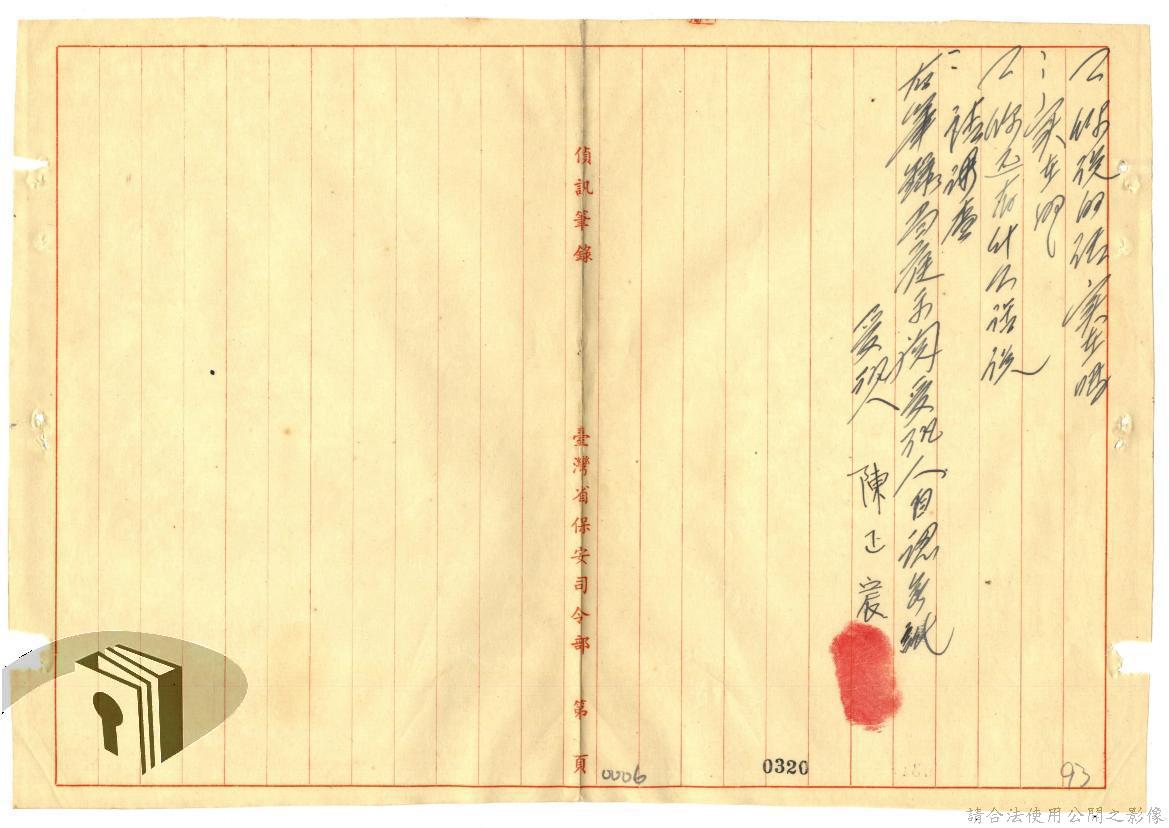 你說的話實在嗎
：實在的
你還有什么話說
：請課虛
右筆錄當庭示閱受訊人自認無誤
受訊人 陳正宸
偵訊筆錄 臺灣省保安司令部 第 頁
0006
0320
93
請合法使用公開之影像